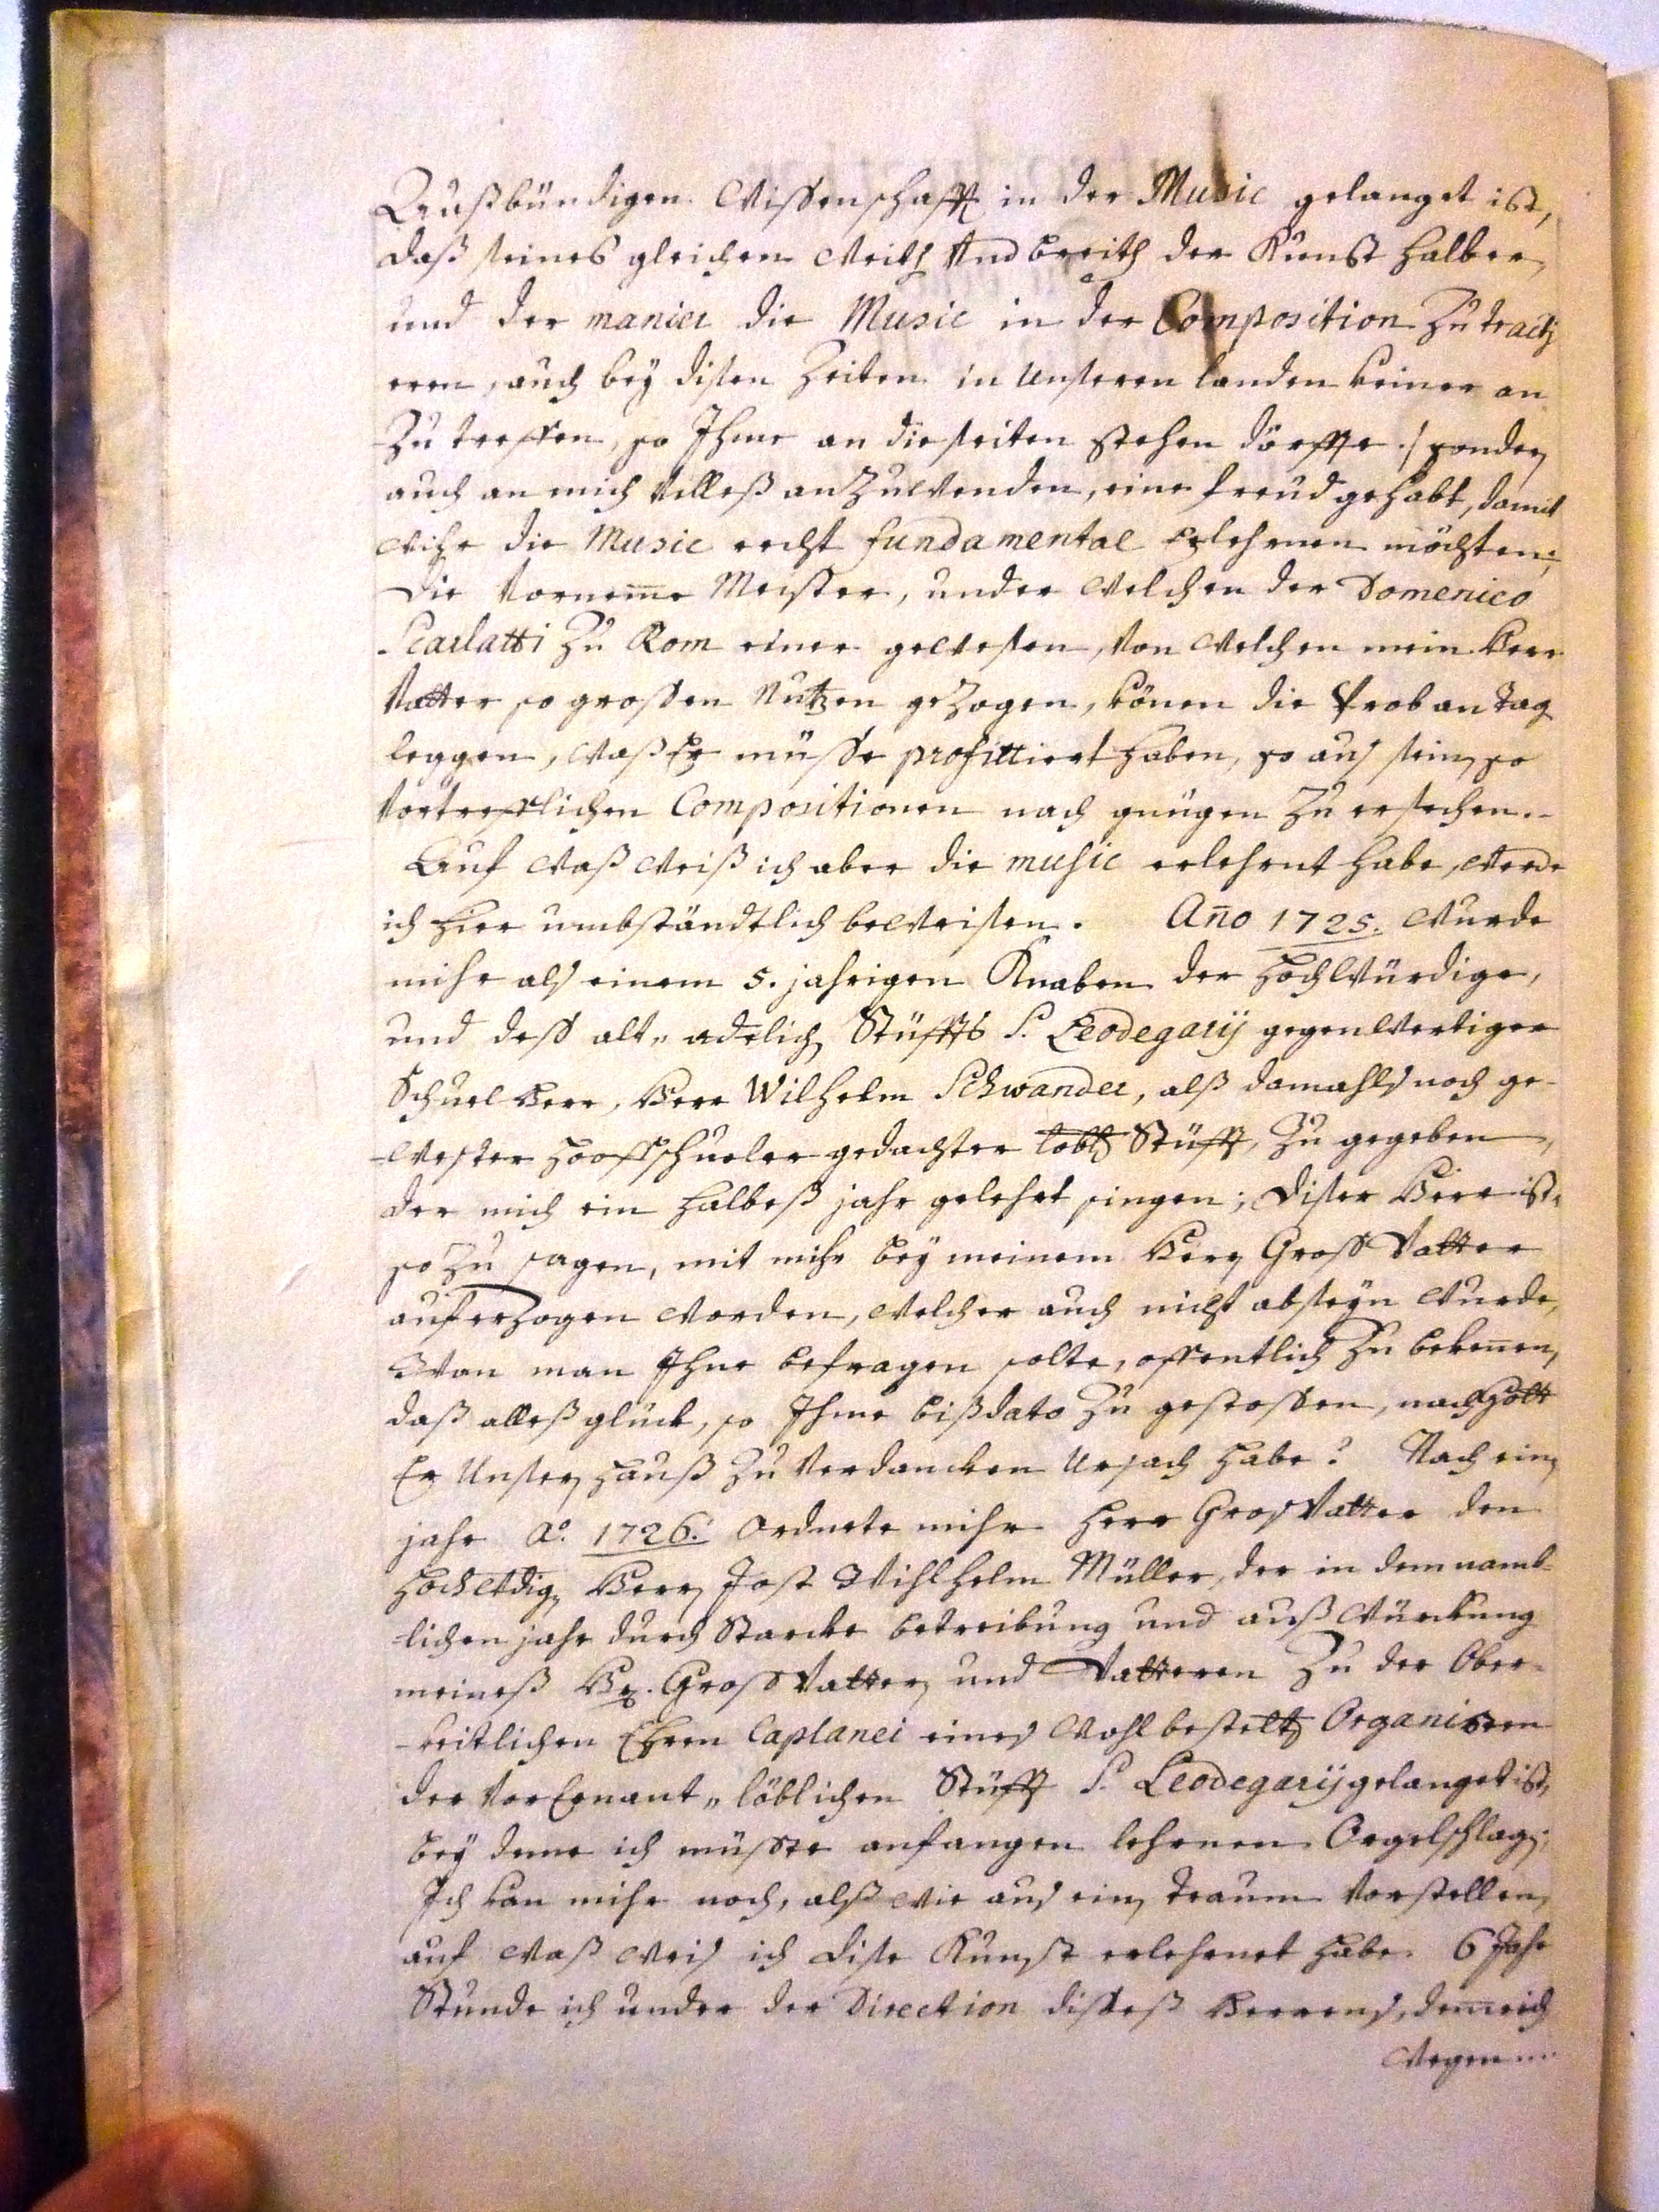 Außbündigen Wissenschafft in der Music gelanget ist,
daß seines gleichen weith und breith der Kunst halber,
und der manier die Music in der Composition zu tracti
eren, auch bey disen Zeiten in unseren landen keiner an
zu treffen, so Ihme an die seiten stehen dörffe ./ sonder
auch an mich villeß anzuwenden, eine freud gehabt, damit
wihr die Music recht fundamental erlehrnen möchten;
die vornem̅e Meister, under welchen der Domenico
Scarlatti zu Rom einer gewesen, von welchen mein Herr
Vatter so grossen Nutzen gezogen, könen die Prob an Tag
leggen, waß Er müsse profittiert haben, so aus sein so
vortrefflichen Compositionen nach gnügen zu ersechen.-
Auf waß weiß ich aber die music erlehrnt habe, werde
ich hier umbständtlich beweisen. An̅o 1725. wurde
mihr als einem 5. jahrigen Knaben der Hochwürdige,
und dess alt„ adelich Stüffts S. Leodegarij gegenwertiger
Schuel Herr, Herr Wilhelm Schwander, alß damahls noch ge-
-wester Hooffschueler gedachter lobl Stüfft, zu gegeben,
der mich ein halbeß jahr gelehrt singen; diser Herr ist,
so zu sagen, mit mihr bey meinem Herr Gross Vatter
auferzogen worden, welcher auch nicht abseyn wurde,
Wan man Ihne befragen solte, offentlich zu beken̅en,
daß alleß glück, so Ihme bißdato zu gestossen, nach Gott
Er unser Hauß zu verdancken ursach habe? Nach ein
jahr Aº. 1726. Ordnete mihr Herr Gros Vatter den
Hochwdig Herr Jost Wihlhelm Müller, der in dem namb
-lichen jahr durch starcke betreibung und außwürckung
meineß Hr. Gross Vatter und Vatteren zu der Ober-
-keitlichen Ehren Caplanei eines wohl bestelt Organisten
der vor Ernant„ löblichen Stüfft S. Leodegarij gelanget ist,
bey deme ich müsste anfangen lehrnen Orgelschlag;
Ich kan mihr noch, alß wie aus ein traum vorstellen,
auf waß weis ich dise Kunst erlehrnet habe. 6 Jahr
stunde ich under der Direction disseß Herrens, dem̅e ich
wegen ...